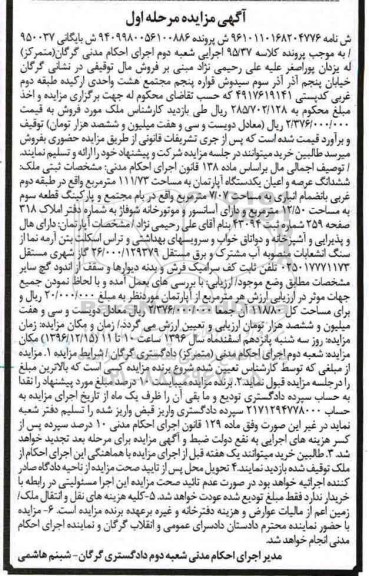 آگهی مزایده مرحله اول
ش نامه ۹۶۱۰۱۱۰۱۶۸۲۰۴۷۷۶ ش پرونده ۹۴۰۹۹۸۰۰۵۶۱۰۰۸۸۶ ش بایگانی ۹۵۰۰۳۷
/ به موجب پرونده کلاسه ۹۵/۳۷ اجرایی شعبه دوم اجرای احکام مدنی گرگان(متمرکز)
له یزدان پوراصغر علیه علی رحیمی نژاد مبنی بر فروش مال توقیفی در نشانی گرگان
خیابان پنجم آذر آذر سوم سیدوش قواره پنجم مجتمع هشت واحدی ارکیده طبقه دوم
غربی کدپستی ۴۹۱۷۶۱۹۱۴۱ که حسب تقاضای محکوم له جهت برگزاری مزایده و اخذ
مبلغ محکوم به ۲۸۵/۷۰۲/۱۲۸ ریال طی بازدید کارشناس ملک مورد فروش به قیمت
۲/۳۷۶/۰۰۰/۰۰۰ ریال (معادل دویست و سی و هفت میلیون و ششصد هزار تومان) توقیف
و برآورد قیمت شده است که پس از جری تشریفات قانونی از طریق مزایده حضوری بفروش
میرسد طالبین خرید میتوانند در جلسه مزایده شرکت و پیشنهاد خود را ارائه و تسلیم نمایند.
/ توصیف اجمالی مال براساس ماده ۱۳۸ قانون اجرای احکام مدنی: مشخصات ثبتی ملک:
ششدانگ عرصه و اعیان یکدستگاه آپارتمان به مساحت ۱۱۱/۷۳ مترمربع واقع در طبقه دوم
غربی بانضمام انباری به مساحت ۷/۰۷ مترمربع واقع در بام مجتمع و پارکینگ قطعه سوم
به مساحت ۱۲/۵۰ مترمربع و دارای آسانسور و موتورخانه شوفاژ به شماره دفتر املاک ۳۱۸
صفحه ۲۵۹ شماره ثبت ۴۲۰۹۴ بنام آقای علی رحیمی نژاد / مشخصات آپارتمان: دارای هال
و پذیرایی و آشپزخانه و دواتاق خواب و سرویسهای بهداشتی و تراس اسکلت بتن آرمه نما از
سنگ انشعابات منصوبه آب مشترک و برق مستقل ۲۶/۰۰۰/۱۲۹۳۷۹ گاز شهری مستقل
۰۲۵۰۱۷۷۷۱۱۷۳ تلفن ثابت کف سرامیک فرش و بدنه دیوارها و سقف از اندود گچ سایر
مشخصات مطابق وضع موجود/ ارزیابی: با بررسی های بعمل آمده و با لحاظ نمودن جمیع
جهات موثر در ارزیابی ارزش هر مترمربع از آپارتمان موردنظر به مبلغ ۲۰/۰۰۰/۰۰۰ ریال و
برای مساحت کل ۱۱۸/۸۰ آن جمعا ۲/۳۷۶/۰۰۰/۰۰۰ ریال معادل دویست و سی و هفت
میلیون و ششصد هزار تومان ارزیابی و تعیین ارزش می گردد./ زمان و مکان مزایده: زمان
مزایده: روز سه شنبه پانزدهم اسفندماه سال ۱۳۹۶ ساعت ۱۰ تا ۱۱ (۱۳۹۶/۱۲/۱۵) مکان
مزایده: شعبه دوم اجرای احکام مدنی (متمرکز) دادگستری گرگان / شرایط مزایده ۱. مزایده
از مبلغی که توسط کارشناس تعیین شده شروع برنده مزایده کسی است که بالاترین مبلغ
را درجلسه مزایده قبول نماید. ۲. برنده مزایده میبایست ۱۰ درصد مبلغ مورد پیشنهاد را نقدا
به حساب سپرده دادگستری تودیع و ما بقی آن را ظرف یک ماه از تاریخ اجرای مزایده به
حساب ۲۱۷۱۲۹۴۷۷۸۰۰۰ سپرده دادگستری واریز قبض واریز شده را تسلیم دفتر شعبه
نماید در غیر این صورت وفق ماده ۱۲۹ قانون اجرای احکام مدنی ۱۰ درصد سپرده پس از
کسر هزینه های اجرایی به نفع دولت ضبط و آگهی مزایده برای مرحله بعد تجدید خواهد
شد. ۳. طالبین خرید میتوانند یک هفته قبل از اجرای مزایده با هماهنگی این اجرای احکام از
ملک توقیف شده بازدید نمایند. ۴. تحویل محل پس از تایید صحت مزایده از ناحیه دادگاه صادر
کننده اجرائیه خواهد بود در صورت عدم تائید صحت مزایده این اجرا مسئولیتی در رابطه با
خریدار ندارد فقط مبلغ تودیع شده عودت خواهد شد. ۵- کلیه هزینه های نقل و انتقال ملک/
زمین اعم از مالیات عوارض و هزینه دفترخانه و غیره برعهده برنده مزایده است. ۶- مزایده
با حضور نماینده محترم دادستان دادسرای عمومی و انقلاب گرگان و نماینده اجرای احکام
مدنی انجام خواهد شد.
مدیر اجرای احکام مدنی شعبه دوم دادگستری گرگان- شبنم هاشمی